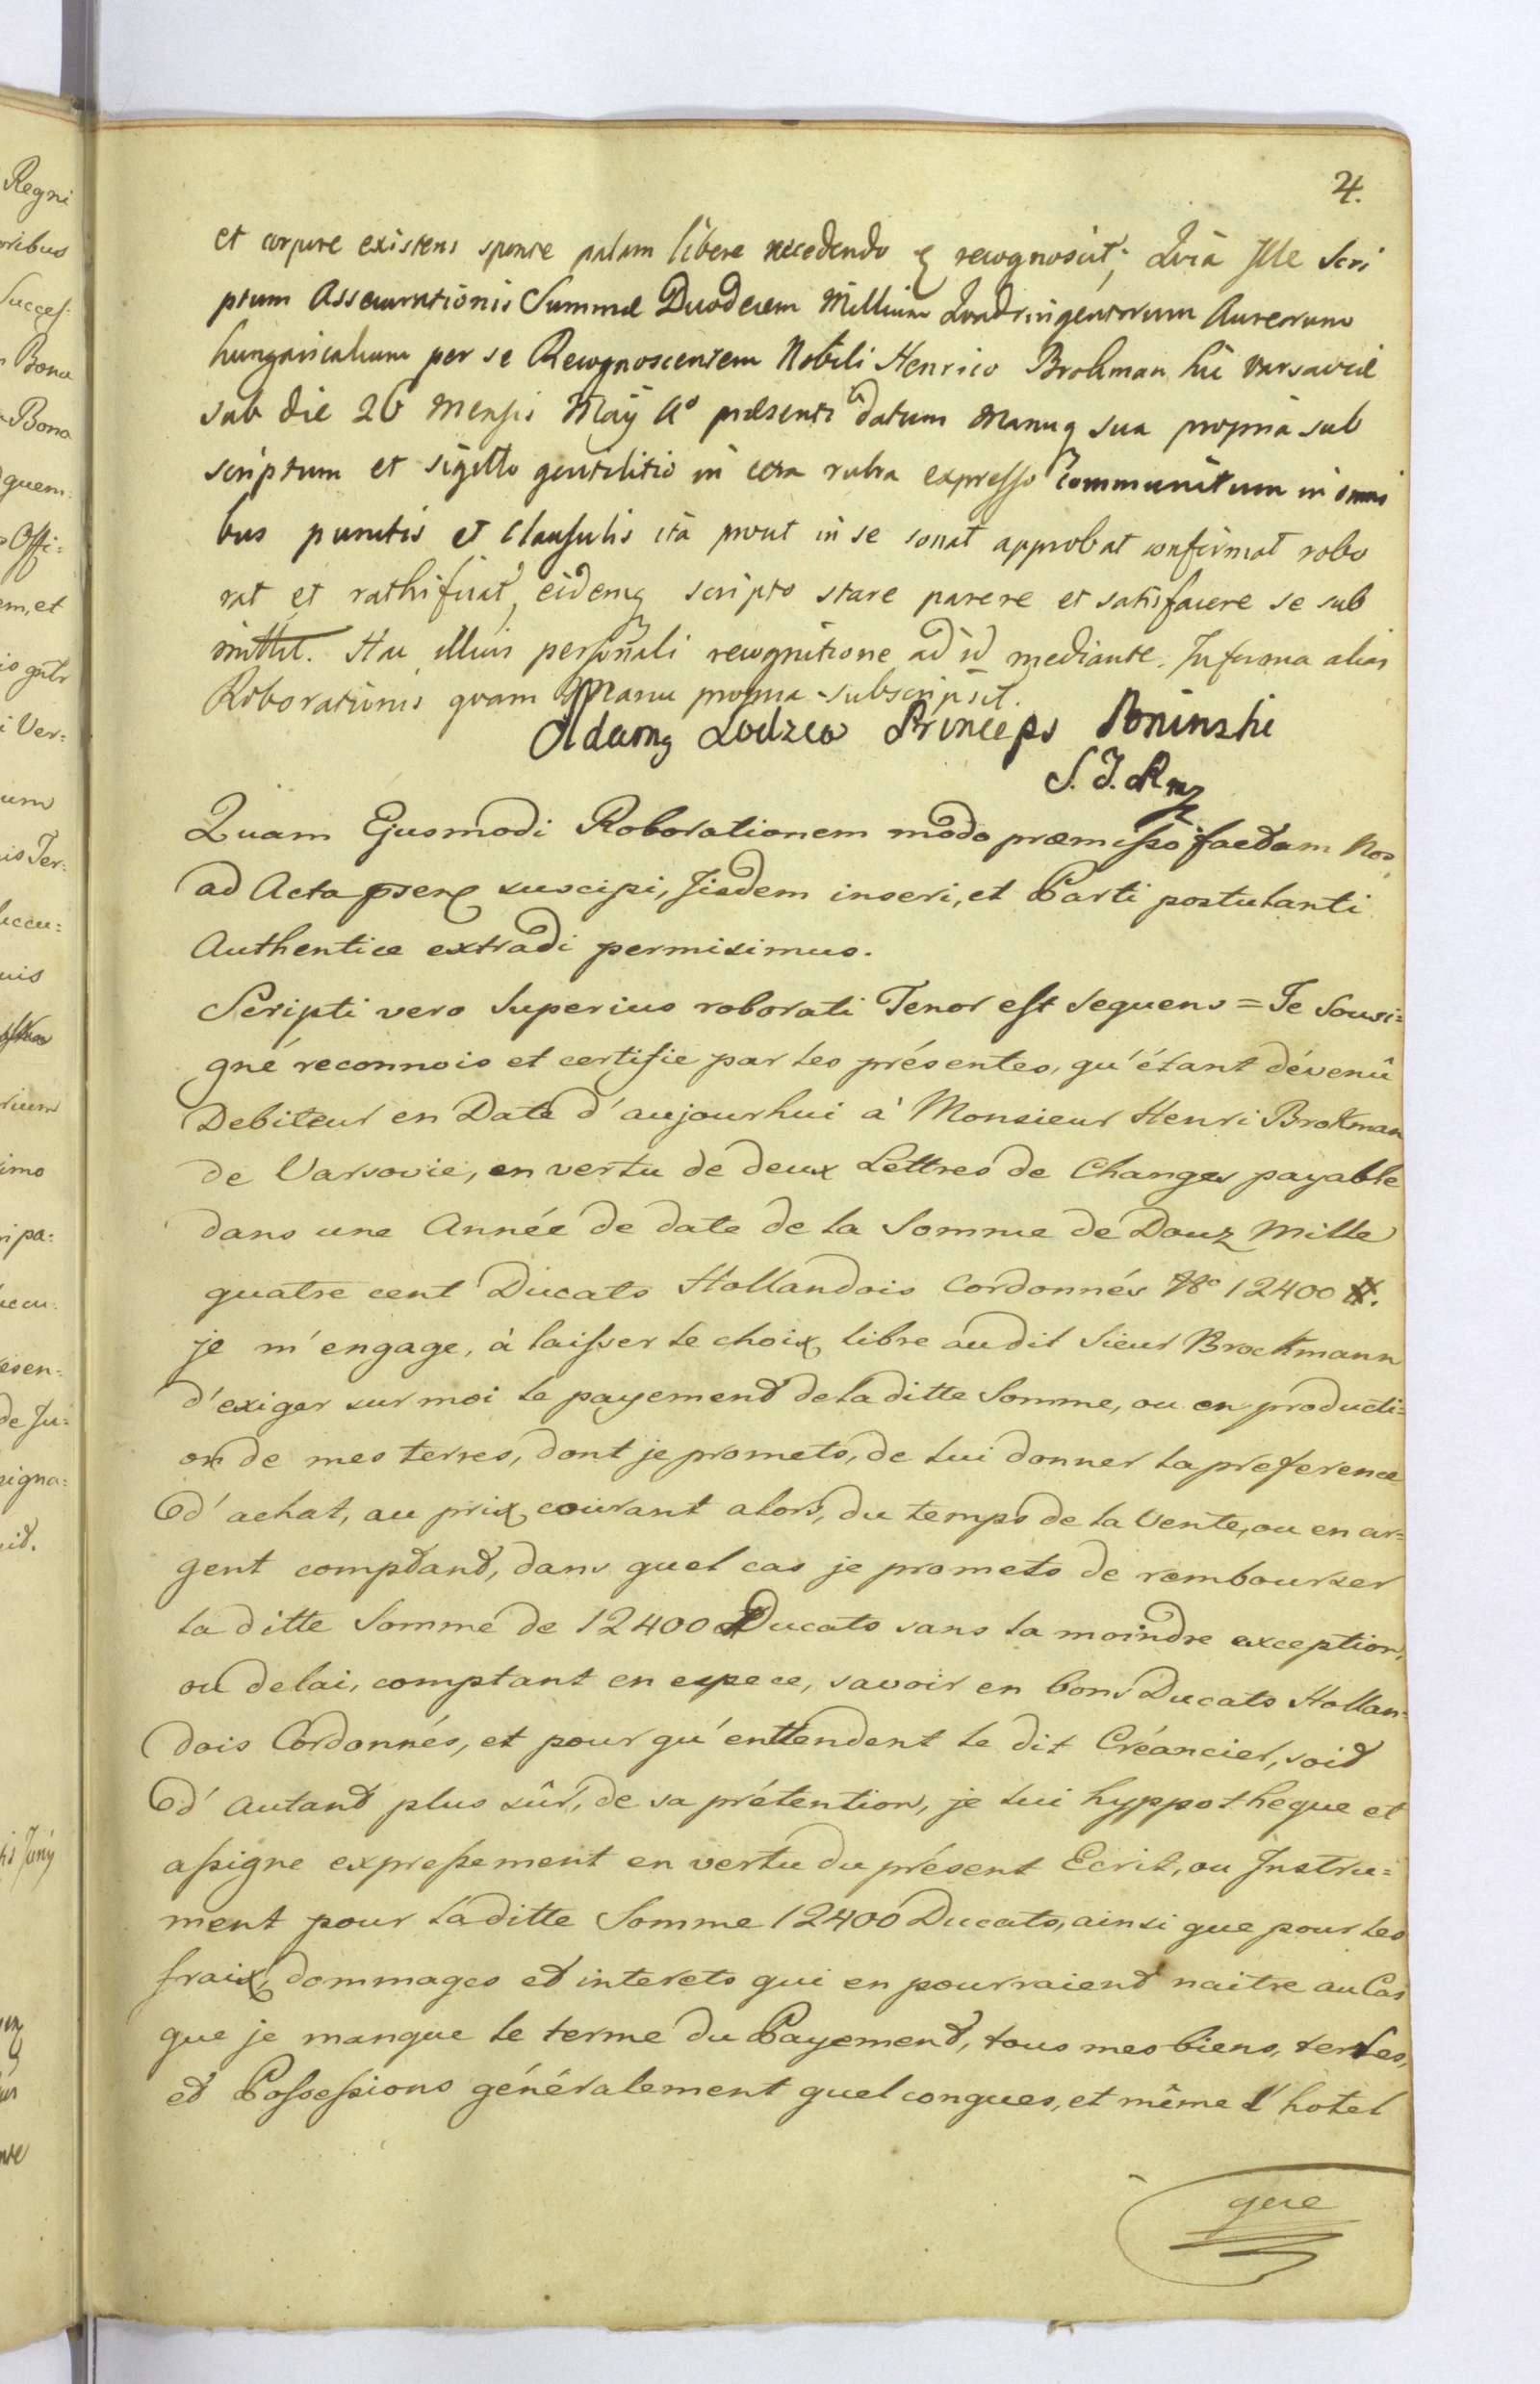 4.
et corpore existens sponte palam libere recedendo & recognoscit; Quia Ille Scri
ptum Assecurationis Summæ Duodecem Millium Quadringentorum Aureorum
hungaricalium per se Recognoscentem Nobili Henrico Brokman hic Varsaviæ
sub die 26 Mensis May Ao præsenti datum Manuq sua propria sub
scriptum et sigillo gentilitio in cera rubra expresso communitum in omni
bus punctis et clausulis ita prout in se sonat approbat confirmat robo
rat et rathificat, eidemq scripto stare parere et satisfacere se sub
mittit. Hac illius personali recognitione ad id mediante. In forma alias
Roborationis quam Manu propria subscripsit.
Adamq Lodzia Princeps Poninski
S. J. R mp
Quam Ejusmodi Roborationem modo præmisso factam Nos
ad Acta psen suscipi, Iisdem inseri, et Parti postulanti
Authentice extradi permisimus.
Scripti vero Superius roborati Tenor est sequens = Je Sousi=
gné reconnois et certifie par les présentes, qu'étant dévenû
Debiteur en Date d'aujourhui à Monsieur Henri Brokman
de Varsovie, en vertu de deux Lettres de Changes payable
dans une Année de date de la Somme de Douz Mille
quatre cent Ducats Hollandois Cordonnés No 12400 #.
je m'engage, à laisser le choix libre audit Sieur Brockmann
d'exiger sur moi le payement de la ditte Somme, ou en producti=
on de mes terres, dont je promets, de lui donner la preference
d'achat, au prix courant alors, du temps de la Vente, ou en ar=
gent comptant, dans quel cas je promets de rembourser
la ditte Somme de 12400 Ducats sans la moindre exception,
ou delai, comptant en espece, savoir en bons Ducats Hollan=
dois Cordonnés, et pour qu'enttendent le dit Créancier, soit
d'autant plus sûr, de sa prétention, je lui hyppotheque et
assigne expressement en vertu du présent Ecrit, ou Instru=
ment pour laditte Somme 12400 Ducats, ainsi que pour les
fraix, dommages et interets qui en pourraient naitre au Cas
que je manque le terme du Payement, tous mes biens, terres,
et Possessions généralement quelconques, et même l'hotel
que